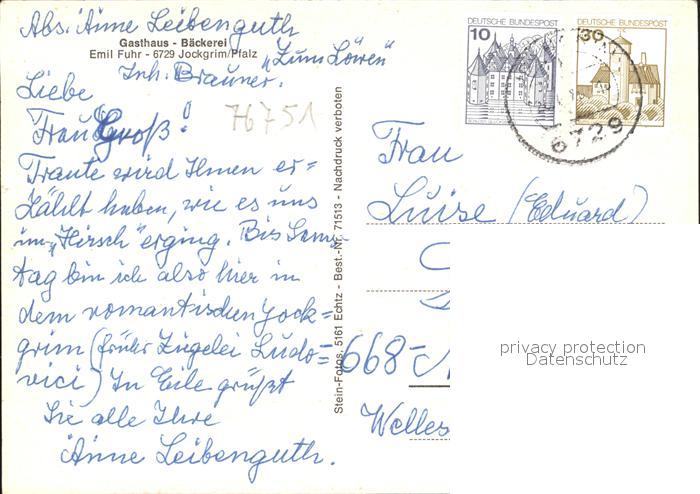 Abs. Änne Leibenguth
Gasthaus - Bäckerei
Emil Fuhr - 6729 Jockgrim/Pfalz
"Zum Löwen"
Inh. Brauner.
76751
Liebe
Frau Groß!
Traute wird Ihnen er=
zählt haben, wie es uns
im "Hirsch" erging. Bis Sams=
tag bin ich also hier in
dem romantischen Jock=
grim (früher Ziegelei Ludo=
vici) In Eile grüßt
Sie alle Ihre
Änne Leibenguth.
Stein-Fotos, 5161 Echtz - Best.-Nr. 71513 - Nachdruck verboten
DEUTSCHE BUNDESPOST
10
DEUTSCHE BUNDESPOST
30
6729
Frau
Luise (Eduard)
668-
Welles
privacy protection
Datenschutz